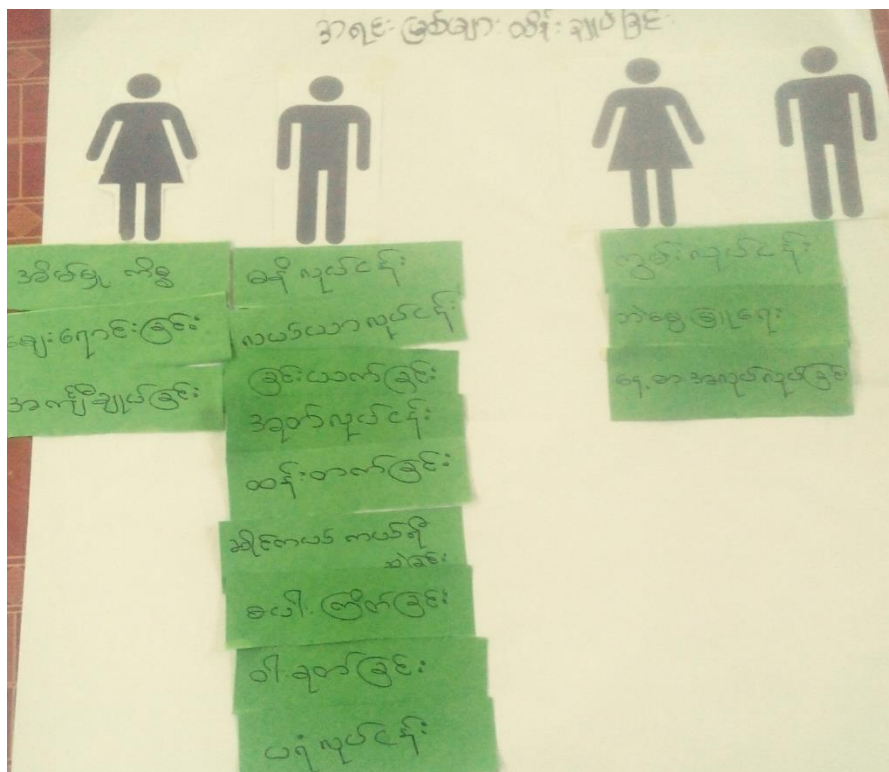 အရင်းအမြစ်များ ထိန်းချုပ်ခြင်း
အိမ်မှု ကိစ္စ
ဈေးရောင်းခြင်း
အင်္ကျီချုပ်ခြင်း
ဓနိ လုပ်ငန်း
လယ်ယာလုပ်ငန်း
ခြင်းယက်ခြင်း
အုတ်လုပ်ငန်း
ထန်းတက်ခြင်း
ဆိုင်ကယ် ကယ်ရီ
ဆွဲခြင်း
စပါး ကြိတ်ခြင်း
ဝါးခုတ်ခြင်း
ပရံလုပ်ငန်း
ကွမ်းလုပ်ငန်း
ဘဲမွေးမြူရေး
နေ့စားအလုပ်လုပ်ခြင်း